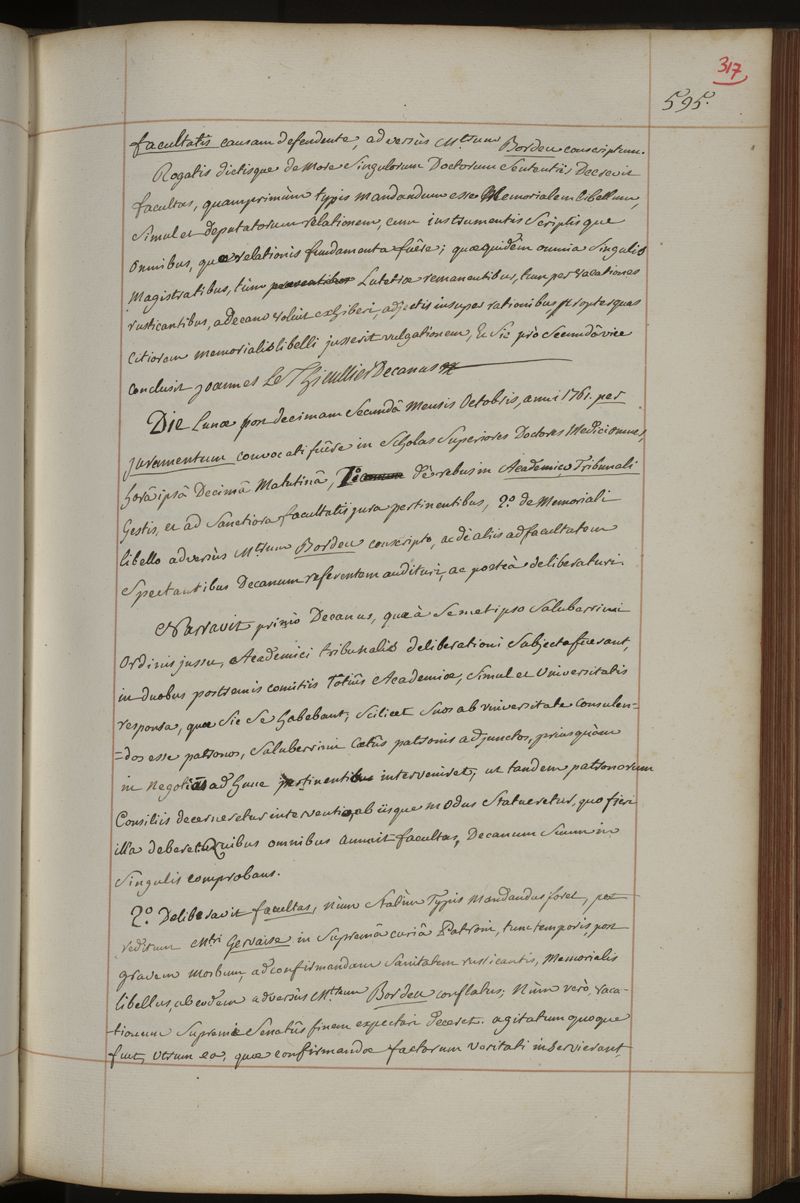 317
595.
facultatis causam defendente, adversùs Mtrum Bordeu conscriptum.
Rogatis dictisque de More Singulorum Doctorum Sententiis Decrevit
facultas, quamprimùm typis Mandandum esse Memorialem Libellum,
Simul et deputatorum relationem, cum instrumentis Scriptisque
Omnibus, quæ relationis fundamenta fuêre; quæ quidem omnia Singulis
Magistratibus, tùm Lutetiæ remanentibus, tum per vacationes
rusticantibus, a decano voluit exhiberi, adjectis insuper rationibus, propter quas
Citiorem memorialis libelli jusserit vulgationem, & Sic prò Secundâ vice
Conclusit Joannes Le Thieullier Decanus
Die Lunæ post decimam Secundâ Mensis Octobris, anni 1761. per
juramentum convocati fuêre in Scholas Superiores Doctores Medici omnes,
horâ ipsâ Decimâ Matutinâ, 1º de rebus in Academico Tribunali
Gestis, et ad Sanctiora facultatis jura pertinentibus, 2º. de Memoriali
libello adversùs Mtrum Bordeu conscripto, ac de aliis ad facultatem
Spectantibus Decanum referentem audituri, ac posteà deliberaturi.
Narravit primò Decanus, quæ à Semetipso Saluberrimi
Ordinis jussu, Academici tribunalis deliberationi Subjecta fuerant,
in duobus postremis comitiis Totiùs Academiæ, Simul et Universitatis
responsa, quæ Sic Se habebant, Scilicet Suos ab universitate consulen=
=dos esse patronos, Saluberrimi Cœtûs patronis adjunctos, priusquàm
in negotiis ad hunc pertinentibus interveniret, ut tandem patronorum
Consiliis decerneretur interventio, ab iisque modus Statueretur, quo fieri
illa deberet. Quibus omnibus annuit facultas, Decanum Suum in
Singulis comprobans.
2º. Deliberavit facultas, Nùm Statìm Typis Mandandus foret, per
reditum Mtri Gervaise in Supremâ curiâ Patroni, tunc temporis, post
gravem Morbum, ad confirmandam Sanitatem rusticantis, Memorialis
libellus, ab eodem adversùs Mtrum Bordeu conflatus; Nùm verò, vaca-
-tionum Supremi Senatûs finem expectari deceret. agitatum quoque
fuit, utrum ea, quæ confirmandæ factorum veritati inservierant,